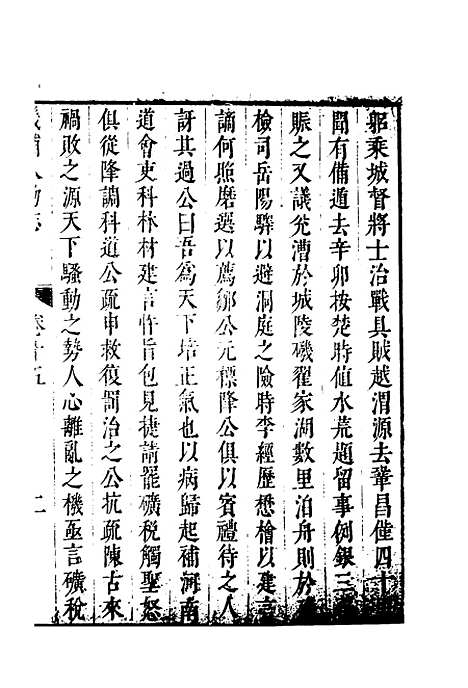 躬乘城督將士治戰具賊越渭源去鞏昌僅四十
聞有備遁去辛卯按楚時值水荒題留事例銀三
賑之又議兊漕於城陵磯翟家湖數里泊舟則於
檢司岳陽驛以避洞庭之險時李經歷懋檜以建言
謫何照磨選以薦鄒公元標降公俱以賓禮待之人
訝其過公曰吾爲天下培正氣也以病歸起補河南
道會吏科林材建言忤旨包見捷請罷礦稅觸聖怒
俱從降謫科道公疏申救復罰治之公抗疏陳古來
禍敗之源天下騷動之勢人心離亂之機亟言礦稅
畿輔人物志 卷十五 二